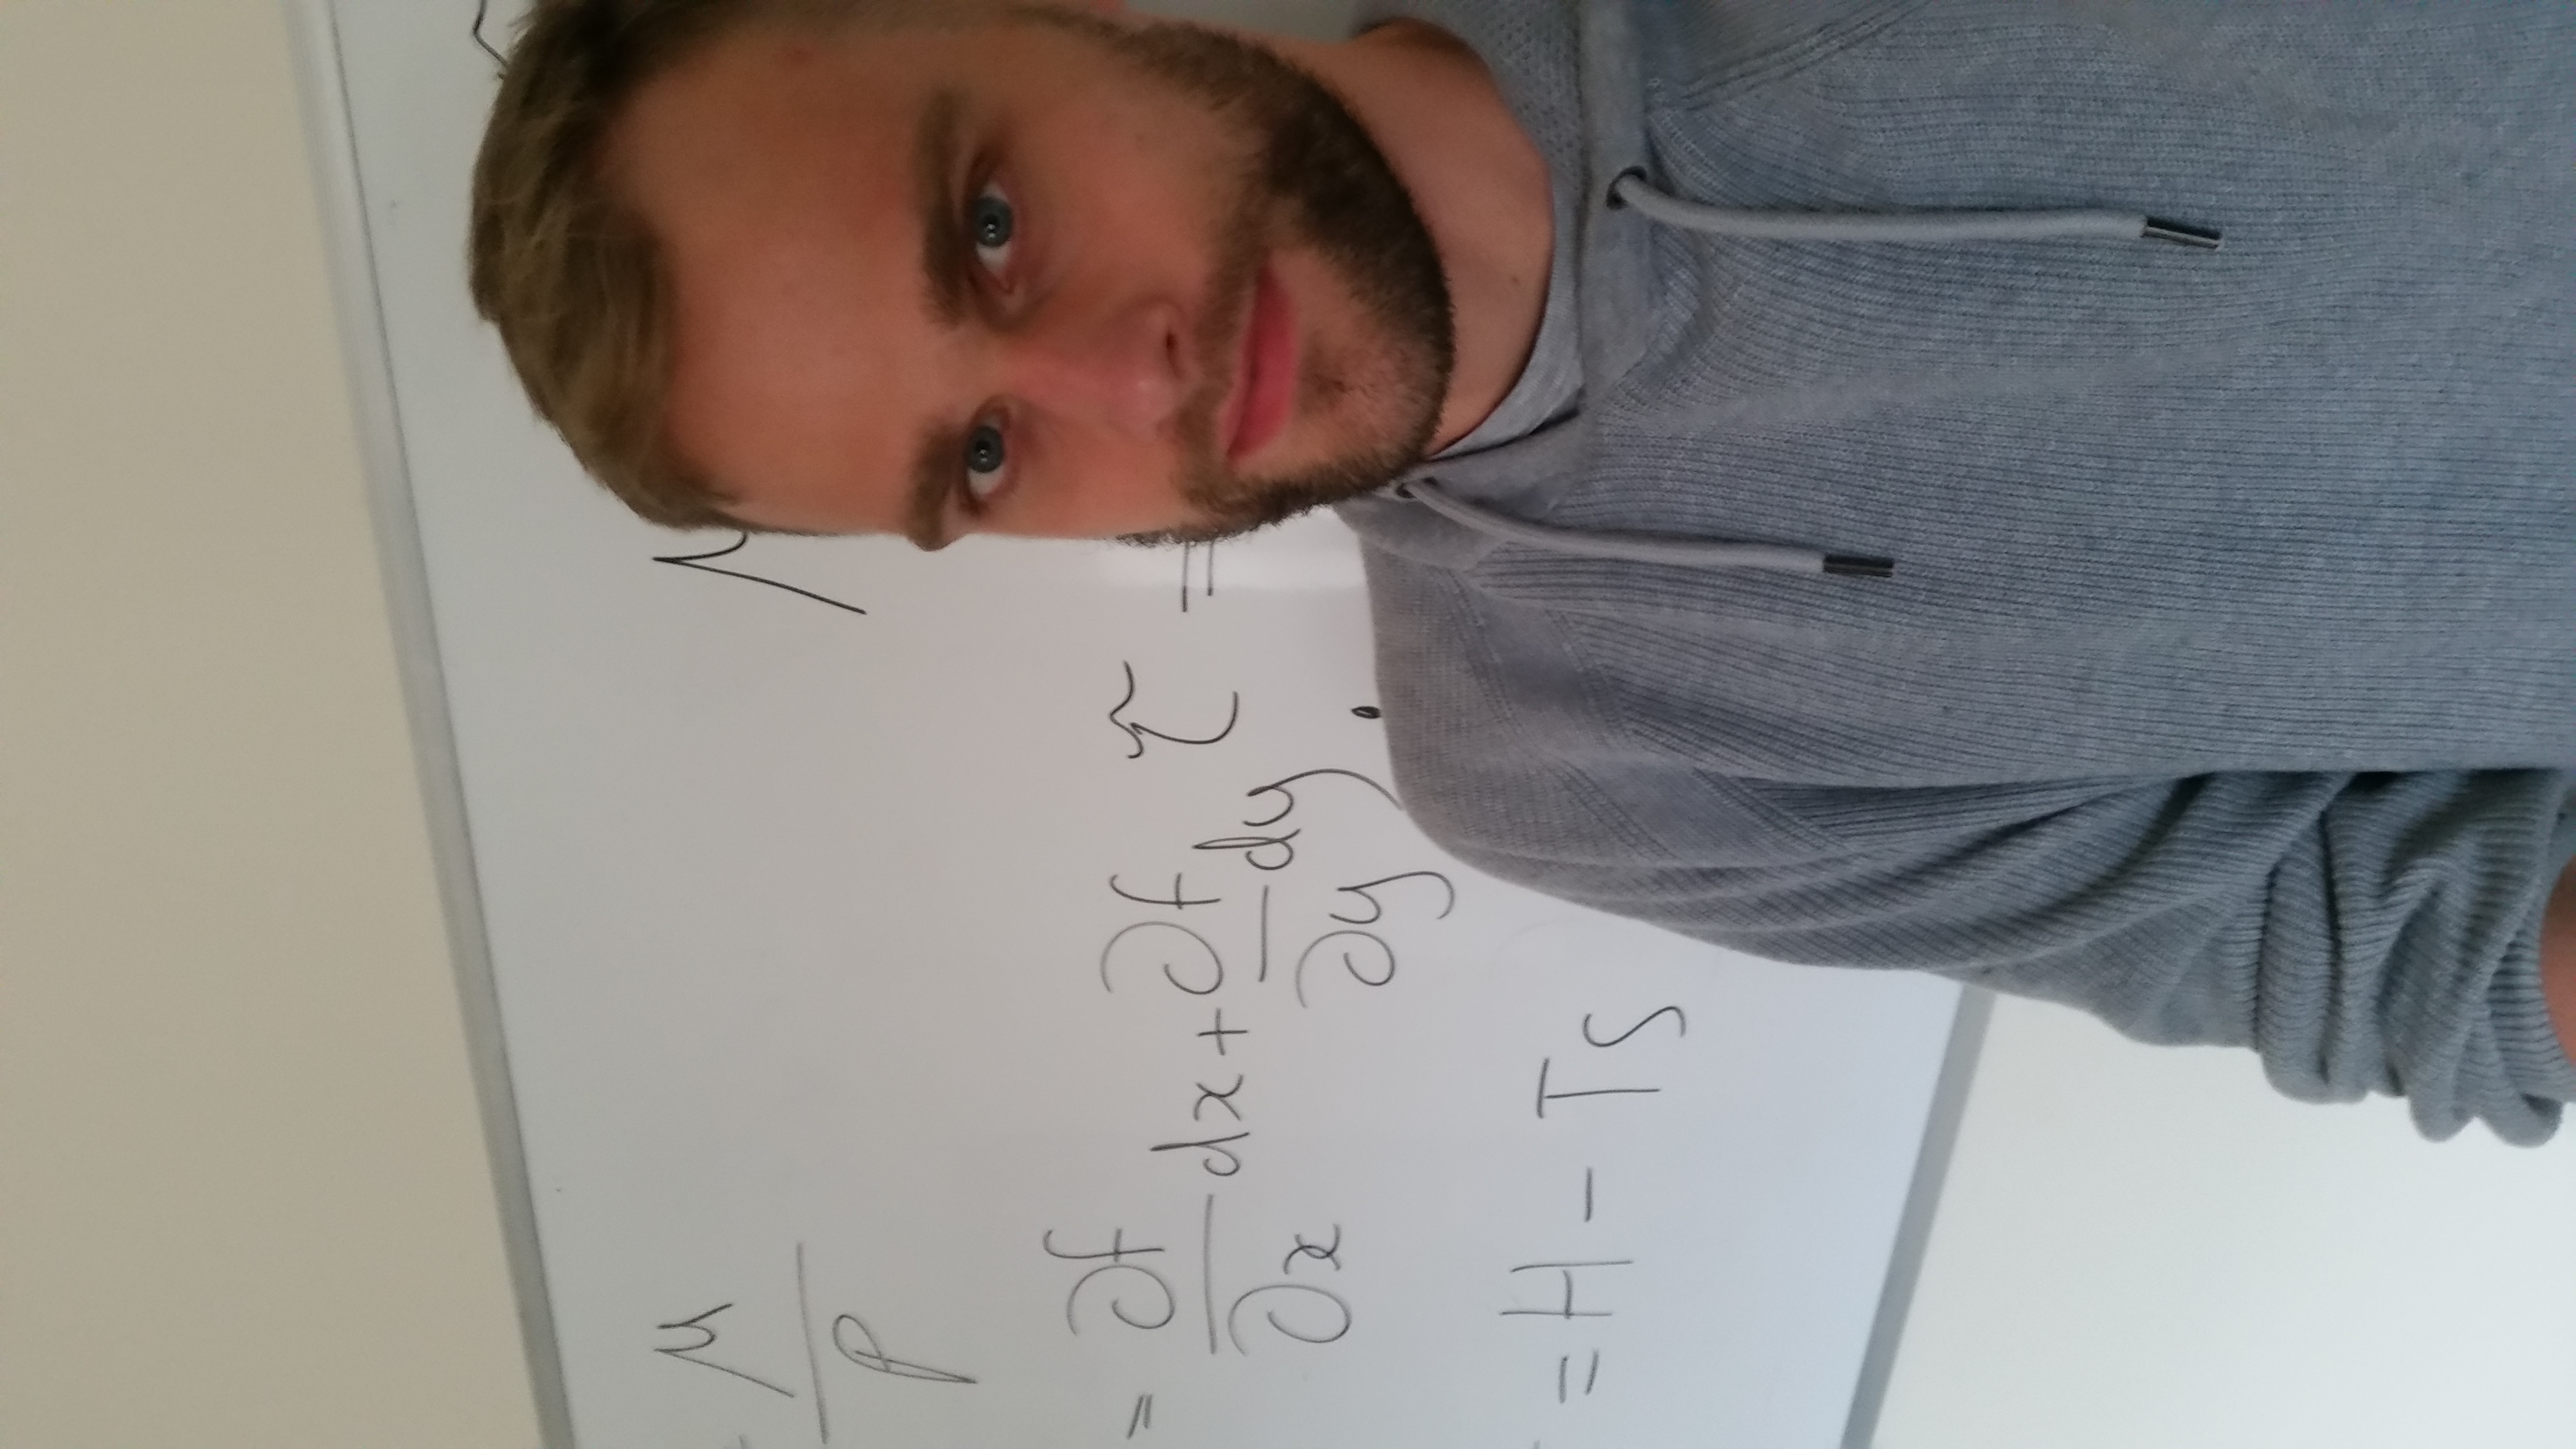 μ/ρ
μ
= ∂f/∂x dx + ∂f/∂y dy
τ =
= H - TS